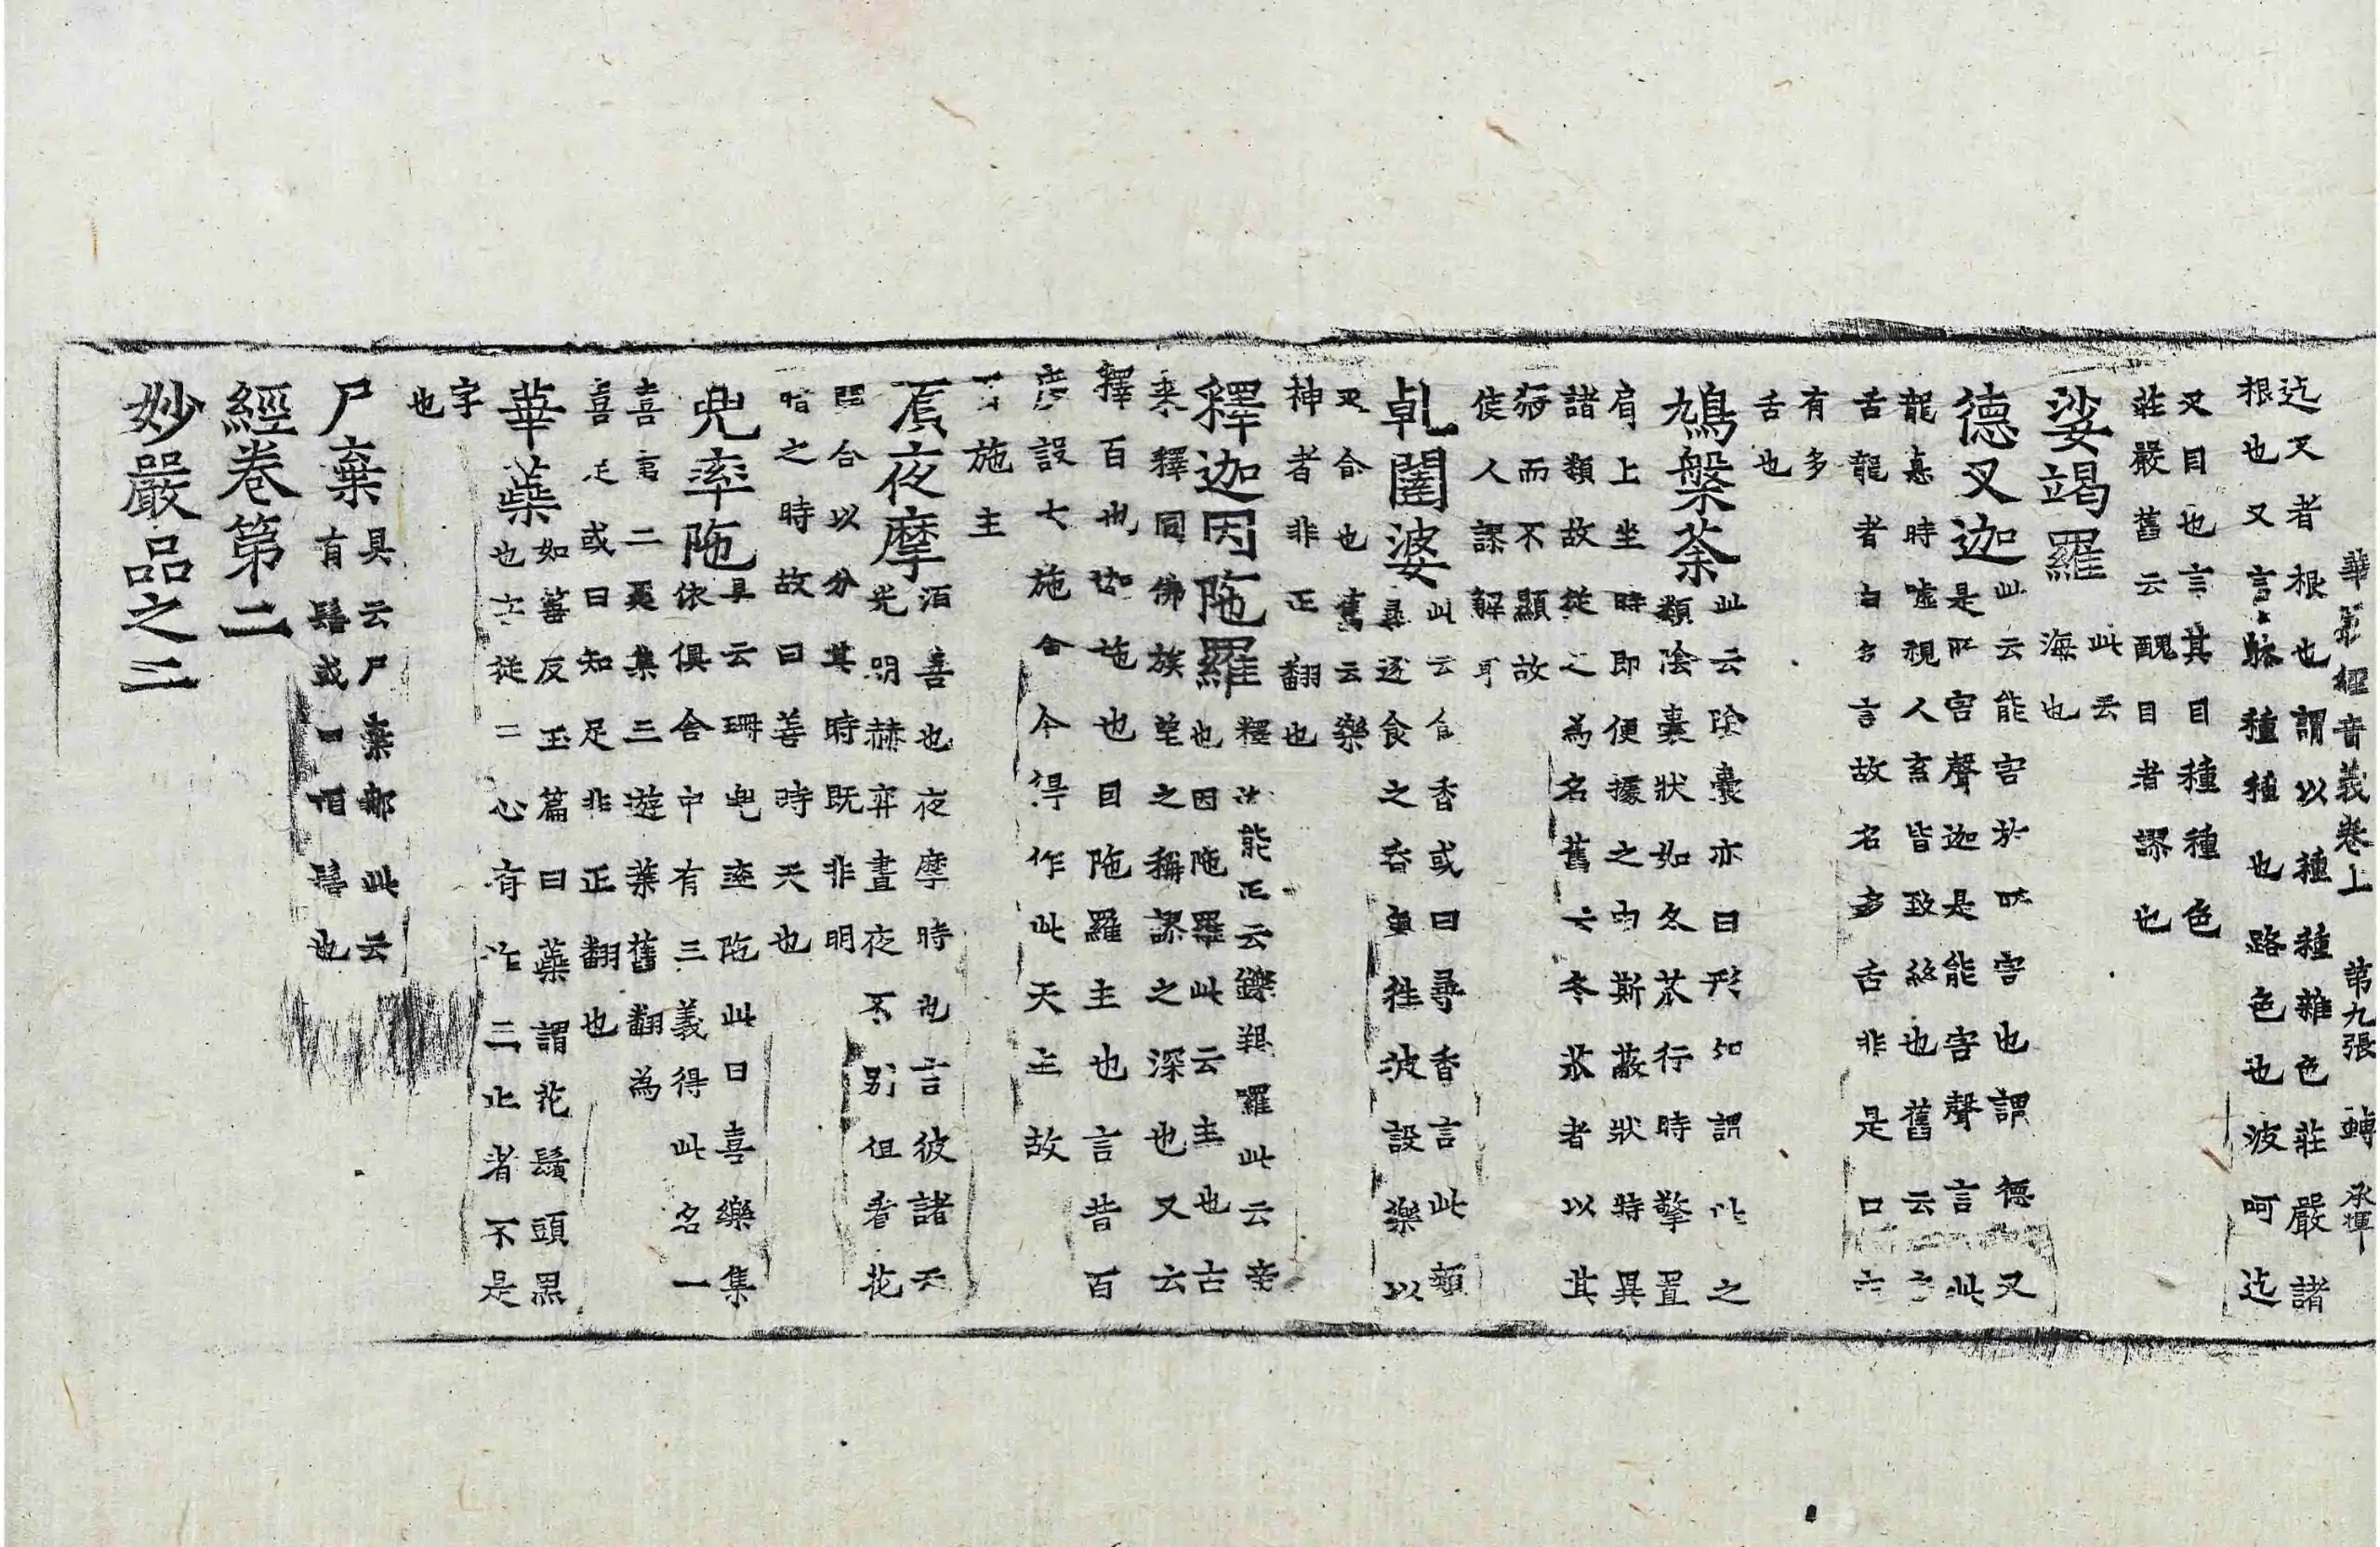 華嚴經音義卷上 第九張 轉 承揮
迄叉者根也謂以種種雜色莊嚴諸
根也又言躰種種也路色也波呵迄
叉目也言其目種種色
莊嚴舊云醜目者謬也
娑竭羅 此云
海也
德叉迦 此云能害於所害也謂德叉
是所害聲迦是能害聲言此
龍恚時噓視人畜皆致終也舊云
舌龍者白名言故名多舌非是口
有多
舌也
鳩槃荼 此云陰囊亦曰形如謂此之
類陰囊狀如冬苽行時擎置
肩上坐時即便據之由斯蔽狀特異
諸類故從之為名舊云冬苽者以其
而不顯故
使人謬解耳
乹闥婆 此云食香或曰尋香言此類
尋逐食之香氣往彼設樂以
又食也舊云樂
神者非正翻也
釋迦因陁羅 釋 能正云鑠羯羅此云帝
也因陁羅此云主也古
來釋同佛族望之稱謬之深也又云
釋百也迦施也目陁羅主也言昔百
度設大施會今得作此天主故
施主
湏夜摩 湏善也夜摩時也言彼諸天
光明赫弈晝夜不別但看花
開合以分其時既非明
暗之時故曰善時天也
兜率陁 具云珊兜率陁此曰喜樂集
依俱舍中有三義得此名一
喜事二聚集三遊樂舊翻為
喜足或曰知足非正翻也
華蘂 如蘂反玉篇曰蘂謂花鬚頭點
也立從二心有作三止者不是
字
也
尸棄 具云尸棄那此云
有髻或一頂髻也
經卷第二
妙嚴品之二